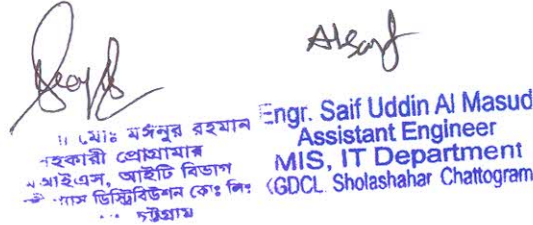 মোঃ মঈনুর রহমান
সহকারী প্রোগ্রামার
এমআইএস, আইটি বিভাগ
গ্যাস ডিস্ট্রিবিউশন কোঃ লিঃ
চট্টগ্রাম
Engr. Saif Uddin Al Masud
Assistant Engineer
MIS, IT Department
KGDCL. Sholashahar Chattogram